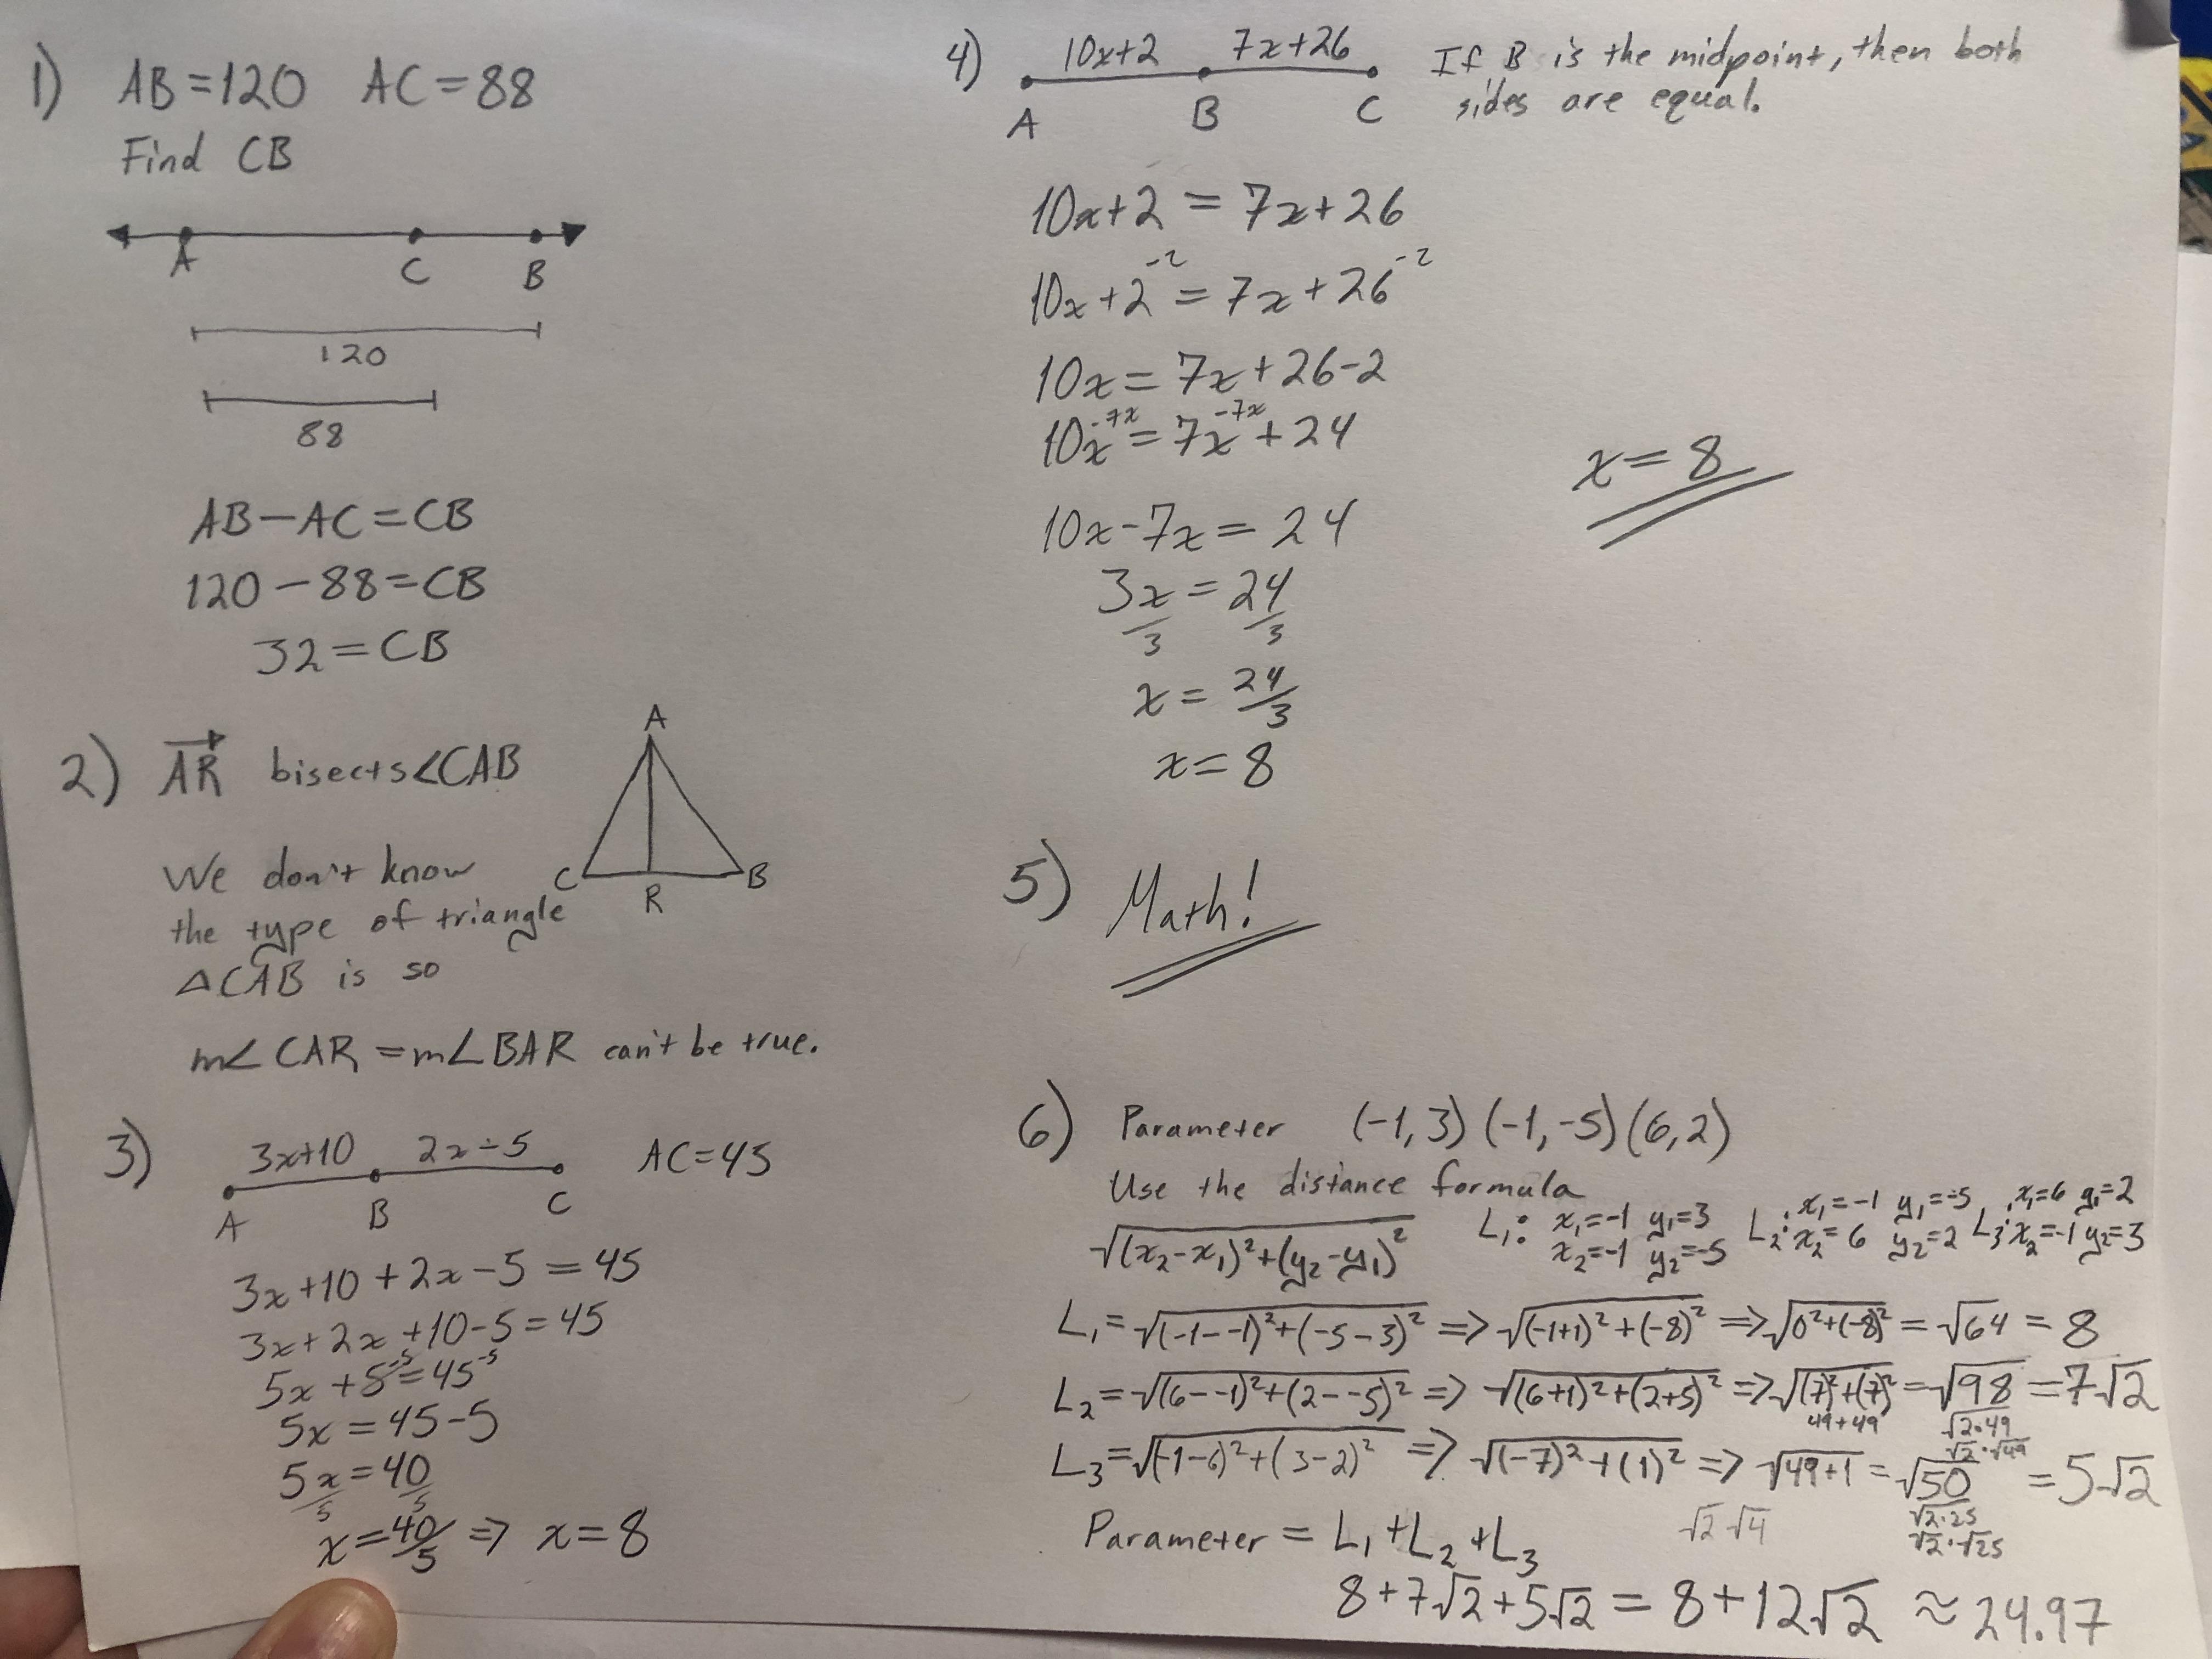 1) AB=120 AC=88
Find CB
A C B
120
88
AB-AC=CB
120-88=CB
32=CB
2) AR bisects∠CAB
A
C R B
We don't know
the type of triangle
△CAB is so
m∠CAR=m∠BAR can't be true.
3) 3x+10 2x-5 AC=45
A B C
3x+10+2x-5=45
3x+2x+10-5=45
5x+5⁻⁵=45⁻⁵
5x=45-5
5x/5=40/5
x=40/5 => x=8
4) 10x+2 7x+26 If B is the midpoint, then both
A B C sides are equal.
10x+2=7x+26
10x+2⁻²=7x+26⁻²
10x=7x+26-2
10x⁻⁷ˣ=7x⁻⁷ˣ+24
10x-7x=24
3x/3=24/3
x=24/3
x=8
x=8
5) Math!
6) Parameter (-1,3)(-1,-5)(6,2)
Use the distance formula
√(x₂-x₁)²+(y₂-y₁)² L₁: x₁=-1 y₁=3 x₂=-1 y₂=-5 L₂: x₁=-1 y₁=-5 x₂=6 y₂=2 L₃: x₁=6 y₁=2 x₂=-1 y₂=3
L₁=√(-1--1)²+(-5-3)² => √(-1+1)²+(-8)² => √0²+(-8)² = √64 = 8
L₂=√(6--1)²+(2--5)² => √(6+1)²+(2+5)² => √(7)²+(7)² = √98 = 7√2
49+49 √2·49
√2·√49
L₃=√(-1-6)²+(3-2)² => √(-7)²+(1)² => √49+1 = √50 = 5√2
√2·25
√2·√25
√2 √4
Parameter = L₁+L₂+L₃
8+7√2+5√2=8+12√2 ≈24.97